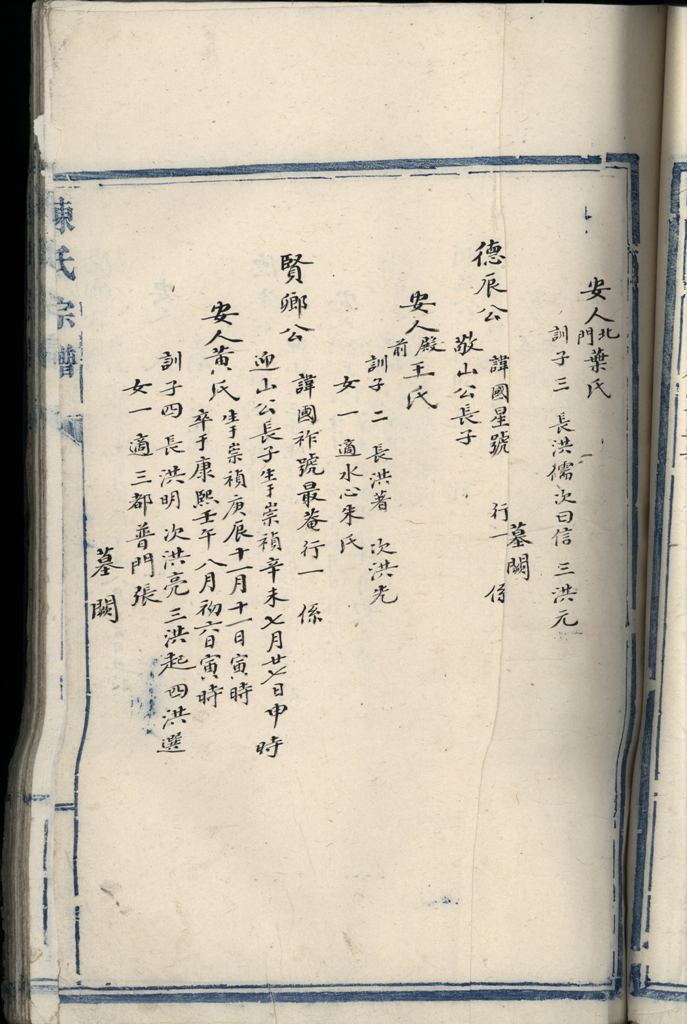 安人北門葉氏
訓子三 長洪儒 次曰信 三洪元
墓闕
德辰公 諱國星號 行一 係
敬山公長子
安人殿前王氏
訓子二 長洪著 次洪光
女一 適水心朱氏
賢鄉公 諱國祚號最菴行一 係
迎山公長子生于崇禎辛未七月廿七日申時
安人黃氏 生于崇禎庚辰十一月十一日寅時
卒于康熙壬午八月初六日寅時
訓子四 長洪明 次洪亮 三洪起 四洪選
女一 適三都普門張
墓闕
陳氏宗譜